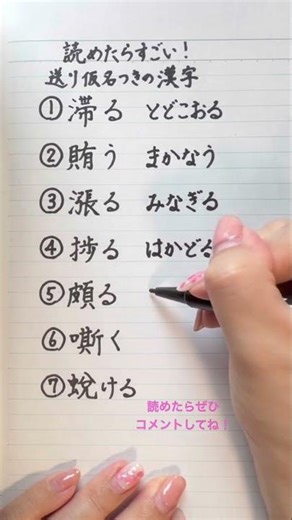 読めたらすごい！
送り仮名つきの漢字
①滞る とどこおる
②賄う まかなう
③漲る みなぎる
④捗る はかどる
⑤頗る
⑥嘶く
⑦蛻ける
読めたらぜひ
コメントしてね！